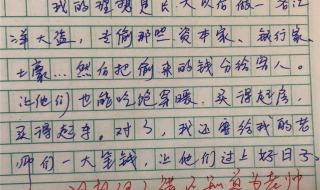 我的理想是长大以后做一名江
洋大盗，去偷那些资本家、银行家、
土豪…然后把偷来的钱分给穷人。
让他们也能吃饱穿暖，买得起房，
买得起车。对了，我还要给我的老
师们一大笔钱，让他们过上好日子。